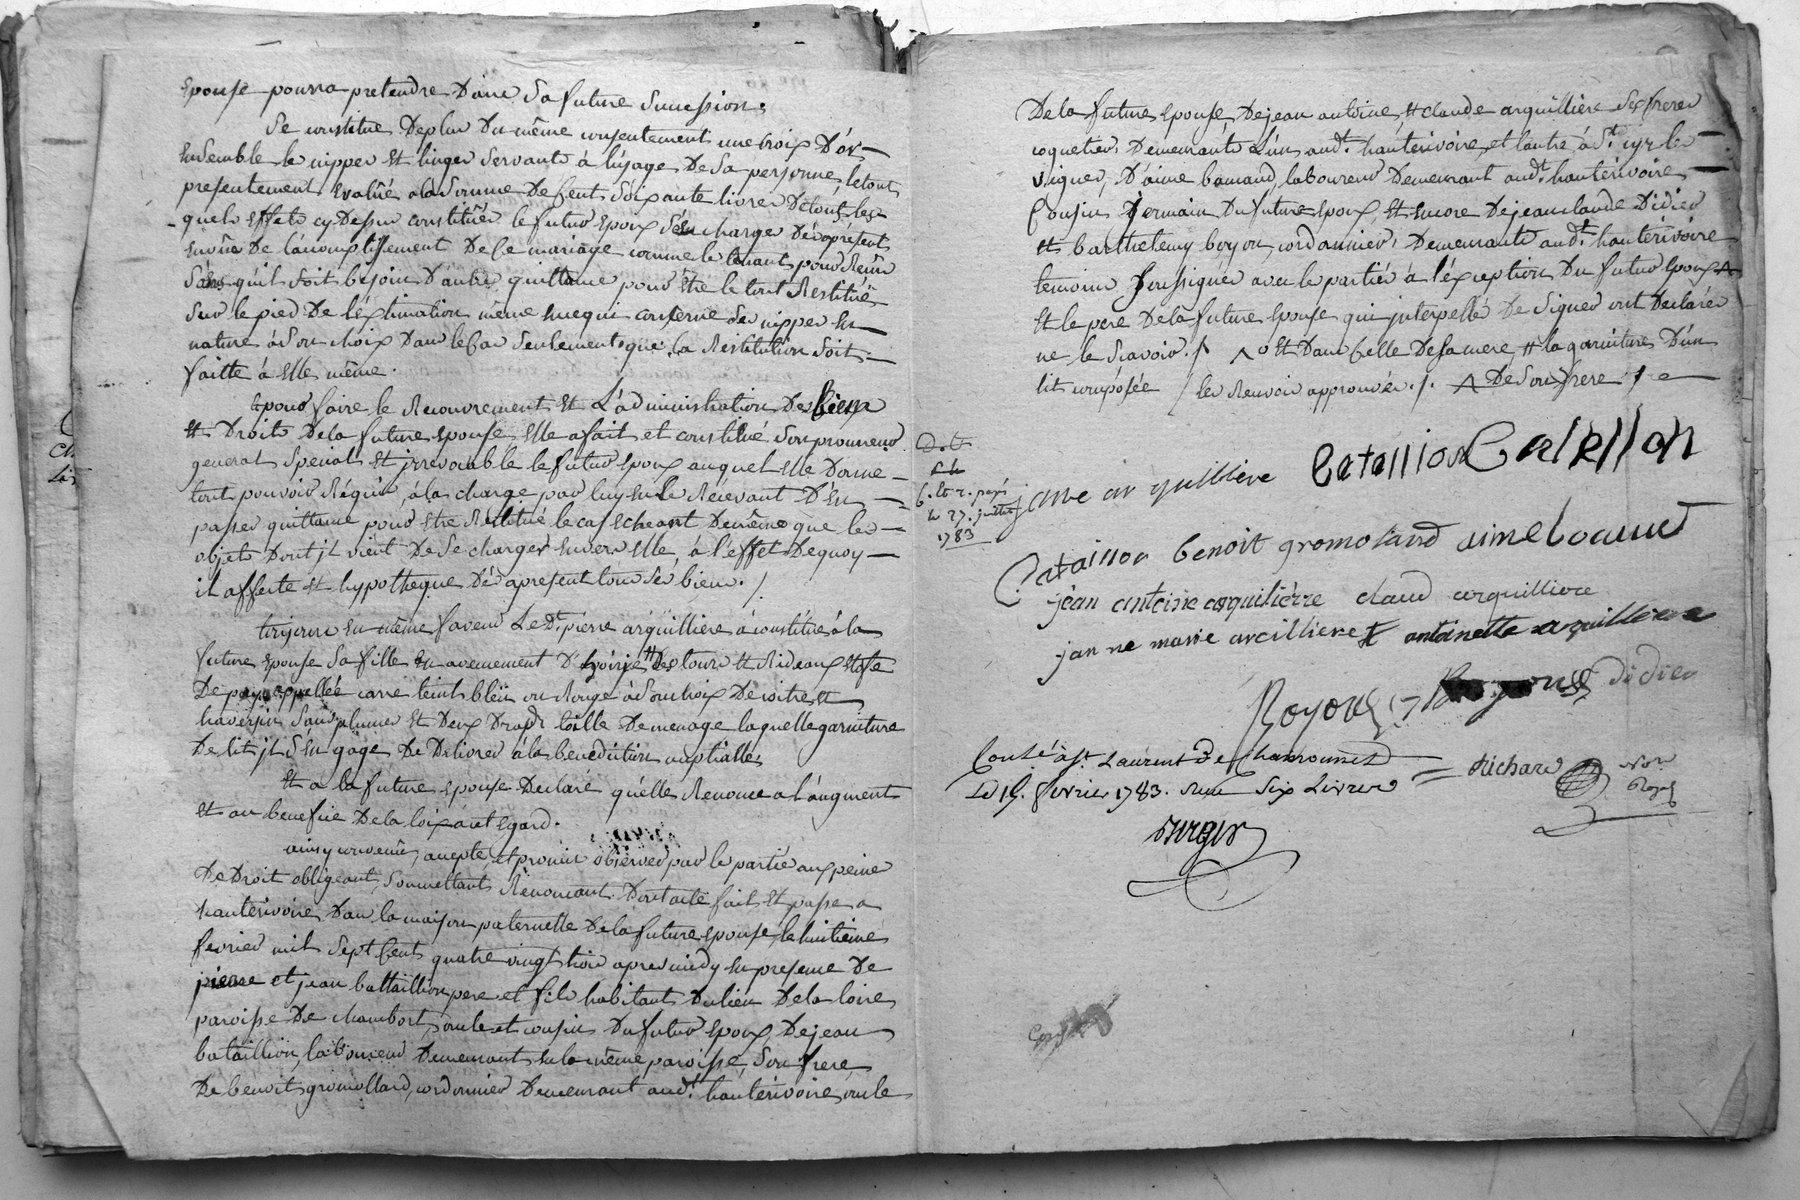 epouse pourra pretendre dans sa future succession.
Se constitue deplus du même consentement une croix d'or
ensemble le nippes et linges servants à l'usage de sa personne le tout
presentement evalué a la somme de cent soixante livres de tous les
quels effets cy dessus constitués le futur epoux s'en charge des apresent
en vüe de l'accomplissement de ce mariage comme le tenant pour
sans qu'il soit besoin d'autre quittance pour être le tout restitué
sur le pied de l'estimation même en ce qui conserne le nippes en
nature à son choix dans le cas seulement que la restitution soit
faitte à elle même.
Et pour faire le recouvrement et l'administration des biens
et droits de la future epouse elle a fait et constitué son procureur
general special et irrevocable le futur epoux auquel elle donne
tout pouvoir requis, à la charge par luy en le recevant d'en
passer quittance pour être restitué le cas echeant de même que les
objets dont il vient de se charger envers elle, à l'effet de quoy
il affecte et hypotheque des apresent tous ses biens. /.
toujours en même faveur Led.t pierre arquilliere a constitué à la
future epouse sa fille en avencement d'hoirie des tours et rideaux etofe
De pays appellée carre teint bleü ou rouge à son choix
sans plumes et deux draps toille de menage laquelle garniture
De lit il s'engage de delivrer à la benediction nuptialle
Et a la future epouse declaré qu'elle renonce a l'augment
et au benefice de la loix à cet egard.
ainsy convenu, accepté et promis observer par le partie aux peine
De droit obligeant, soumettant, renoncant. Dont acte fait et passé a
hauterivoire, dans la maison paternelle de la future epouse, le huitieme
fevrier mil sept cent quatre vingt trois apres midy en presence de
pierre et jean battaillion pere et fils habitants du lieu de la loire
paroisse de chambost, oncle et cousin du futur epoux, de jean
bataillion, laboureur demeurant en la même paroisse, son frere,
De benoit gromollard, cordonnier demeurant aud.t hauterivoire, oncle
De la future epouse, de jean antoine et claude arquilliere ses freres
coquetiers demeurants l'un aud.t hauterivoire, et l'autre à S.t cyr les
vignes, d'aime bamand, laboureur demeurant aud.t hauterivoire
Cousin germain du future epoux et encore de jean claude didier
et barthelemy boyon, cordonniers demeurants aud.t hauterivoire
temoins soussignés avec le partiés à l'exception du futur epoux
et le pere de la future epouse qui interpellé de signer ont declarés
ne le scavoir. /. et dans celle de sa mere # la garniture d'un
lit composée / les renvois approuvés. /. de son frere /
Cte. et r. payés
le 27. juillet
1783
jane arquilliere Catallion Catellon
Cataillon benoit gromolard aime
jean antoine arquilière claud arquilliere
jan ne marie arcilliere antoinette arquilliere
Royon didier
Conté à St. Laurent De Chamousset
Le 15. fevrier 1783. Reçu Six Livres
Richard
not.re
Royal